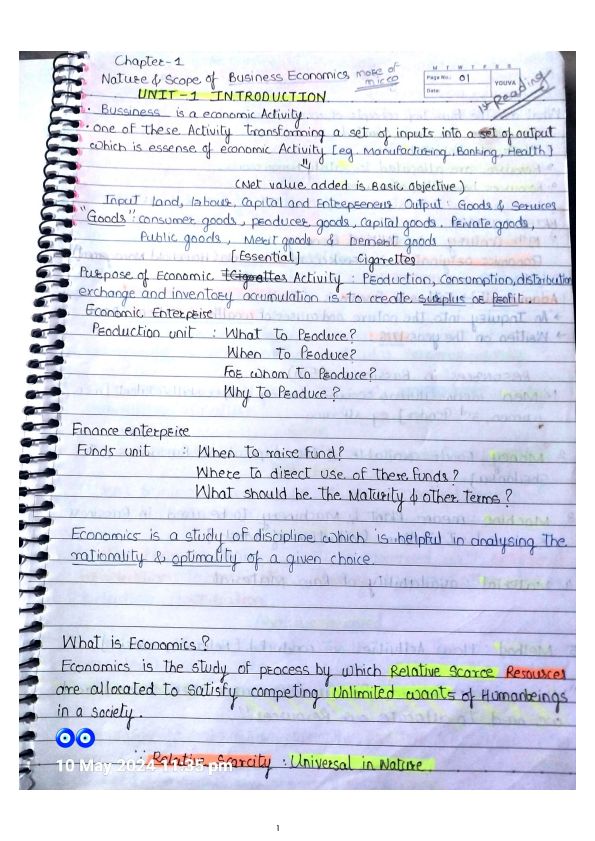 Chapter-1
Nature & Scope of Business Economics more of micro
M T W T F S S
Page No.: 01
Date:
YOUVA
1st Reading
UNIT-1 INTRODUCTION
• Bussiness is a economic Activity.
• One of These Activity Transforming a set of inputs into a set of output
which is essense of economic Activity [eg. Manufacturing, Banking, Health]
⇓
(Net value added is Basic objective)
Input : land, labour, Capital and Entrepreneur Output : Goods & Services
"Goods": consumer goods, producer goods, Capital goods, Private goods,
Public goods, Merit goods & Demerit goods
[Essential] Cigarettes
Purpose of Economic Activity : Production, Consumption, distribution
exchange and inventory accumulation is to create surplus or Profit.
Economic Enterprise
Production unit : What to Produce?
When to Produce?
For whom to Produce?
Why to Produce?
Finance enterprise
Funds unit : When to raise Fund?
Where to direct use of these funds?
What should be the Maturity & other Terms?
Economics is a study of discipline which is helpful in analysing the
rationality & optimality of a given choice.
What is Economics?
Economics is the study of process by which Relative Scarce Resources
are allocated to satisfy competing Unlimited wants of Humanbeings
in a society.
10 May 2024 11:35 pm
∵ Relative Scarcity : Universal in Nature.
1